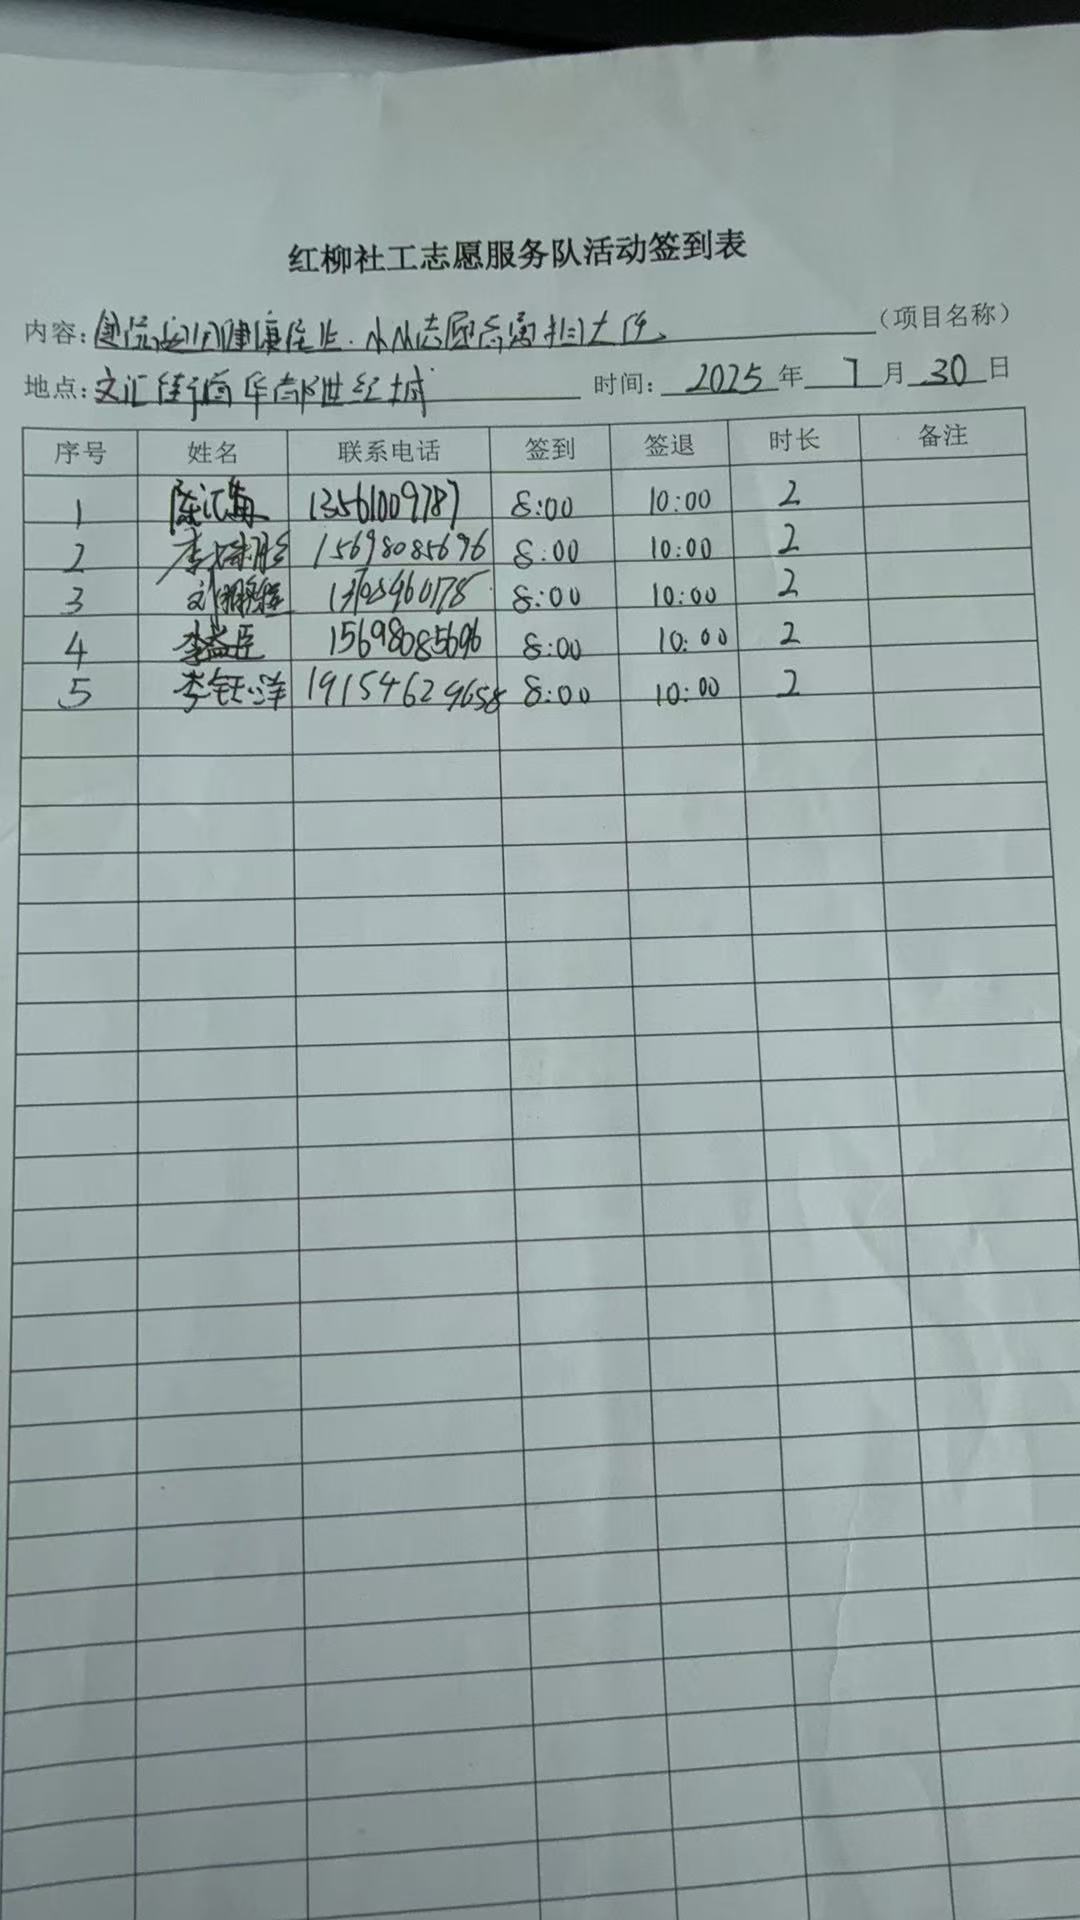 红柳社工志愿服务队活动签到表
内容: 健康 志愿 (项目名称)
地点: 文汇街道华都世纪城 时间: 2025 年 7 月 30 日
序号 姓名 联系电话 签到 签退 时长 备注
1 陈汇 13561009787 8:00 10:00 2
2 李 15698085696 8:00 10:00 2
3 刘 8:00 10:00 2
4 李益臣 15698085696 8:00 10:00 2
5 李钰洋 19154629658 8:00 10:00 2